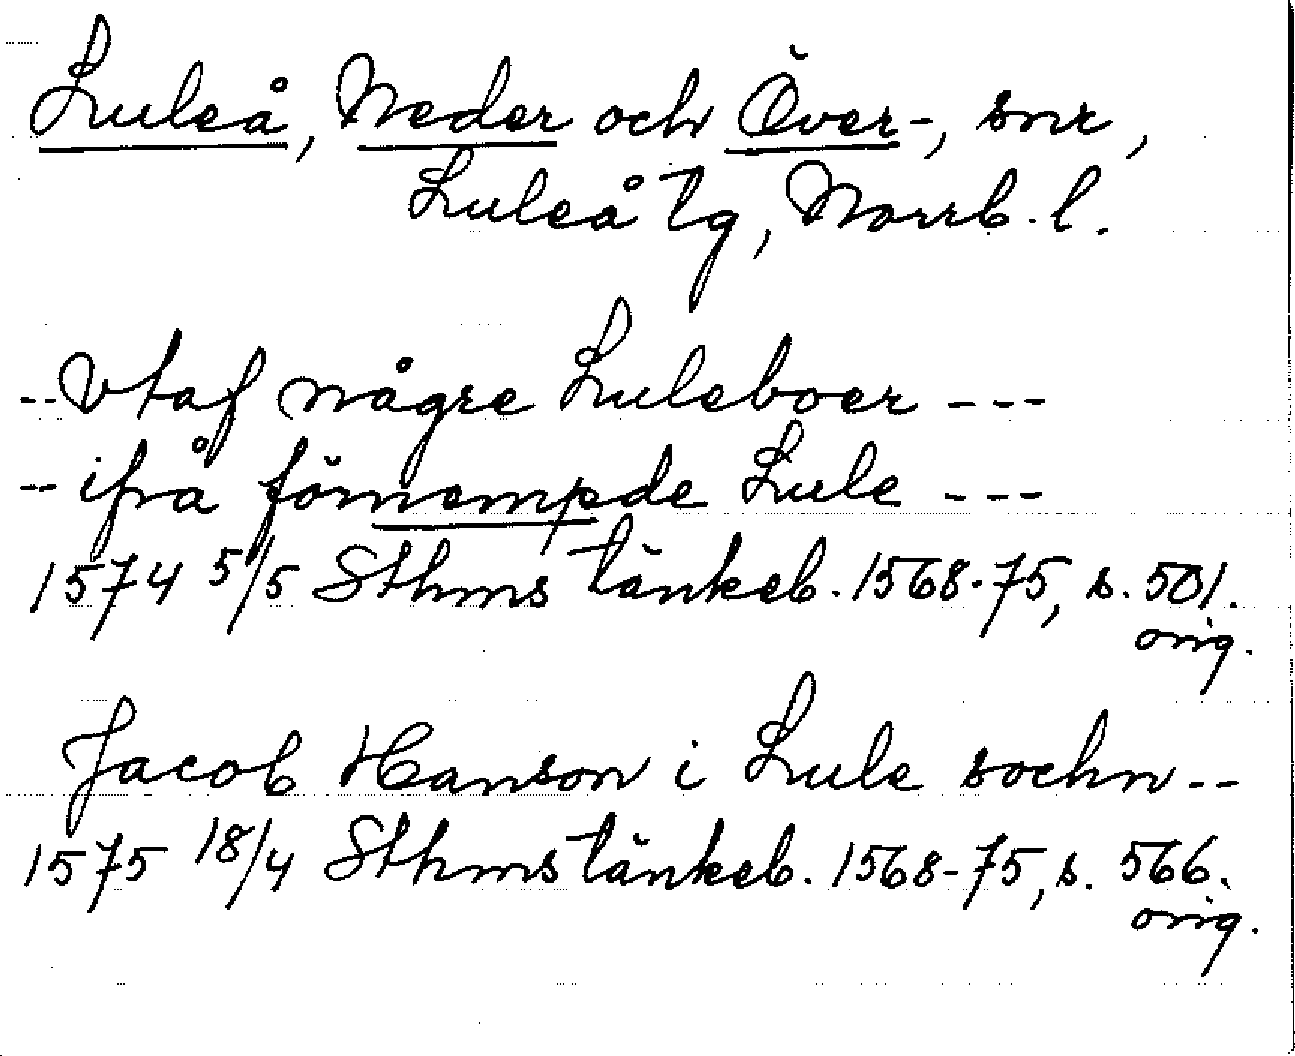 Luleå, Neder och Över-, snr,
Luleå tg, Norrb. l.
-- Vtaf någre Luleboer ---
-- ifrå förnempde Lule ---
1574 5/5 Sthms tänkeb. 1568-75, s. 501.
orig.
Jacob Hanson i Lule sochn --
1575 18/4 Sthms tänkeb. 1568-75, s. 566.
orig.